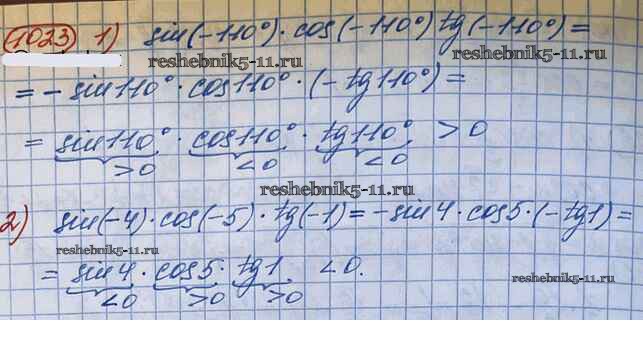 1023 1) sin(-110°)·cos(-110°) tg(-110°) =
reshebnik5-11.ru
= - sin110°·cos110°·(-tg110°) =
reshebnik5-11.ru
= sin110°·cos110°·tg110° > 0
>0 <0 <0
reshebnik5-11.ru
2) sin(-4)·cos(-5)·tg(-1) = -sin4·cos5·(-tg1) =
reshebnik5-11.ru
= sin4·cos5·tg1 < 0.
reshebnik5-11.ru
<0 >0 >0